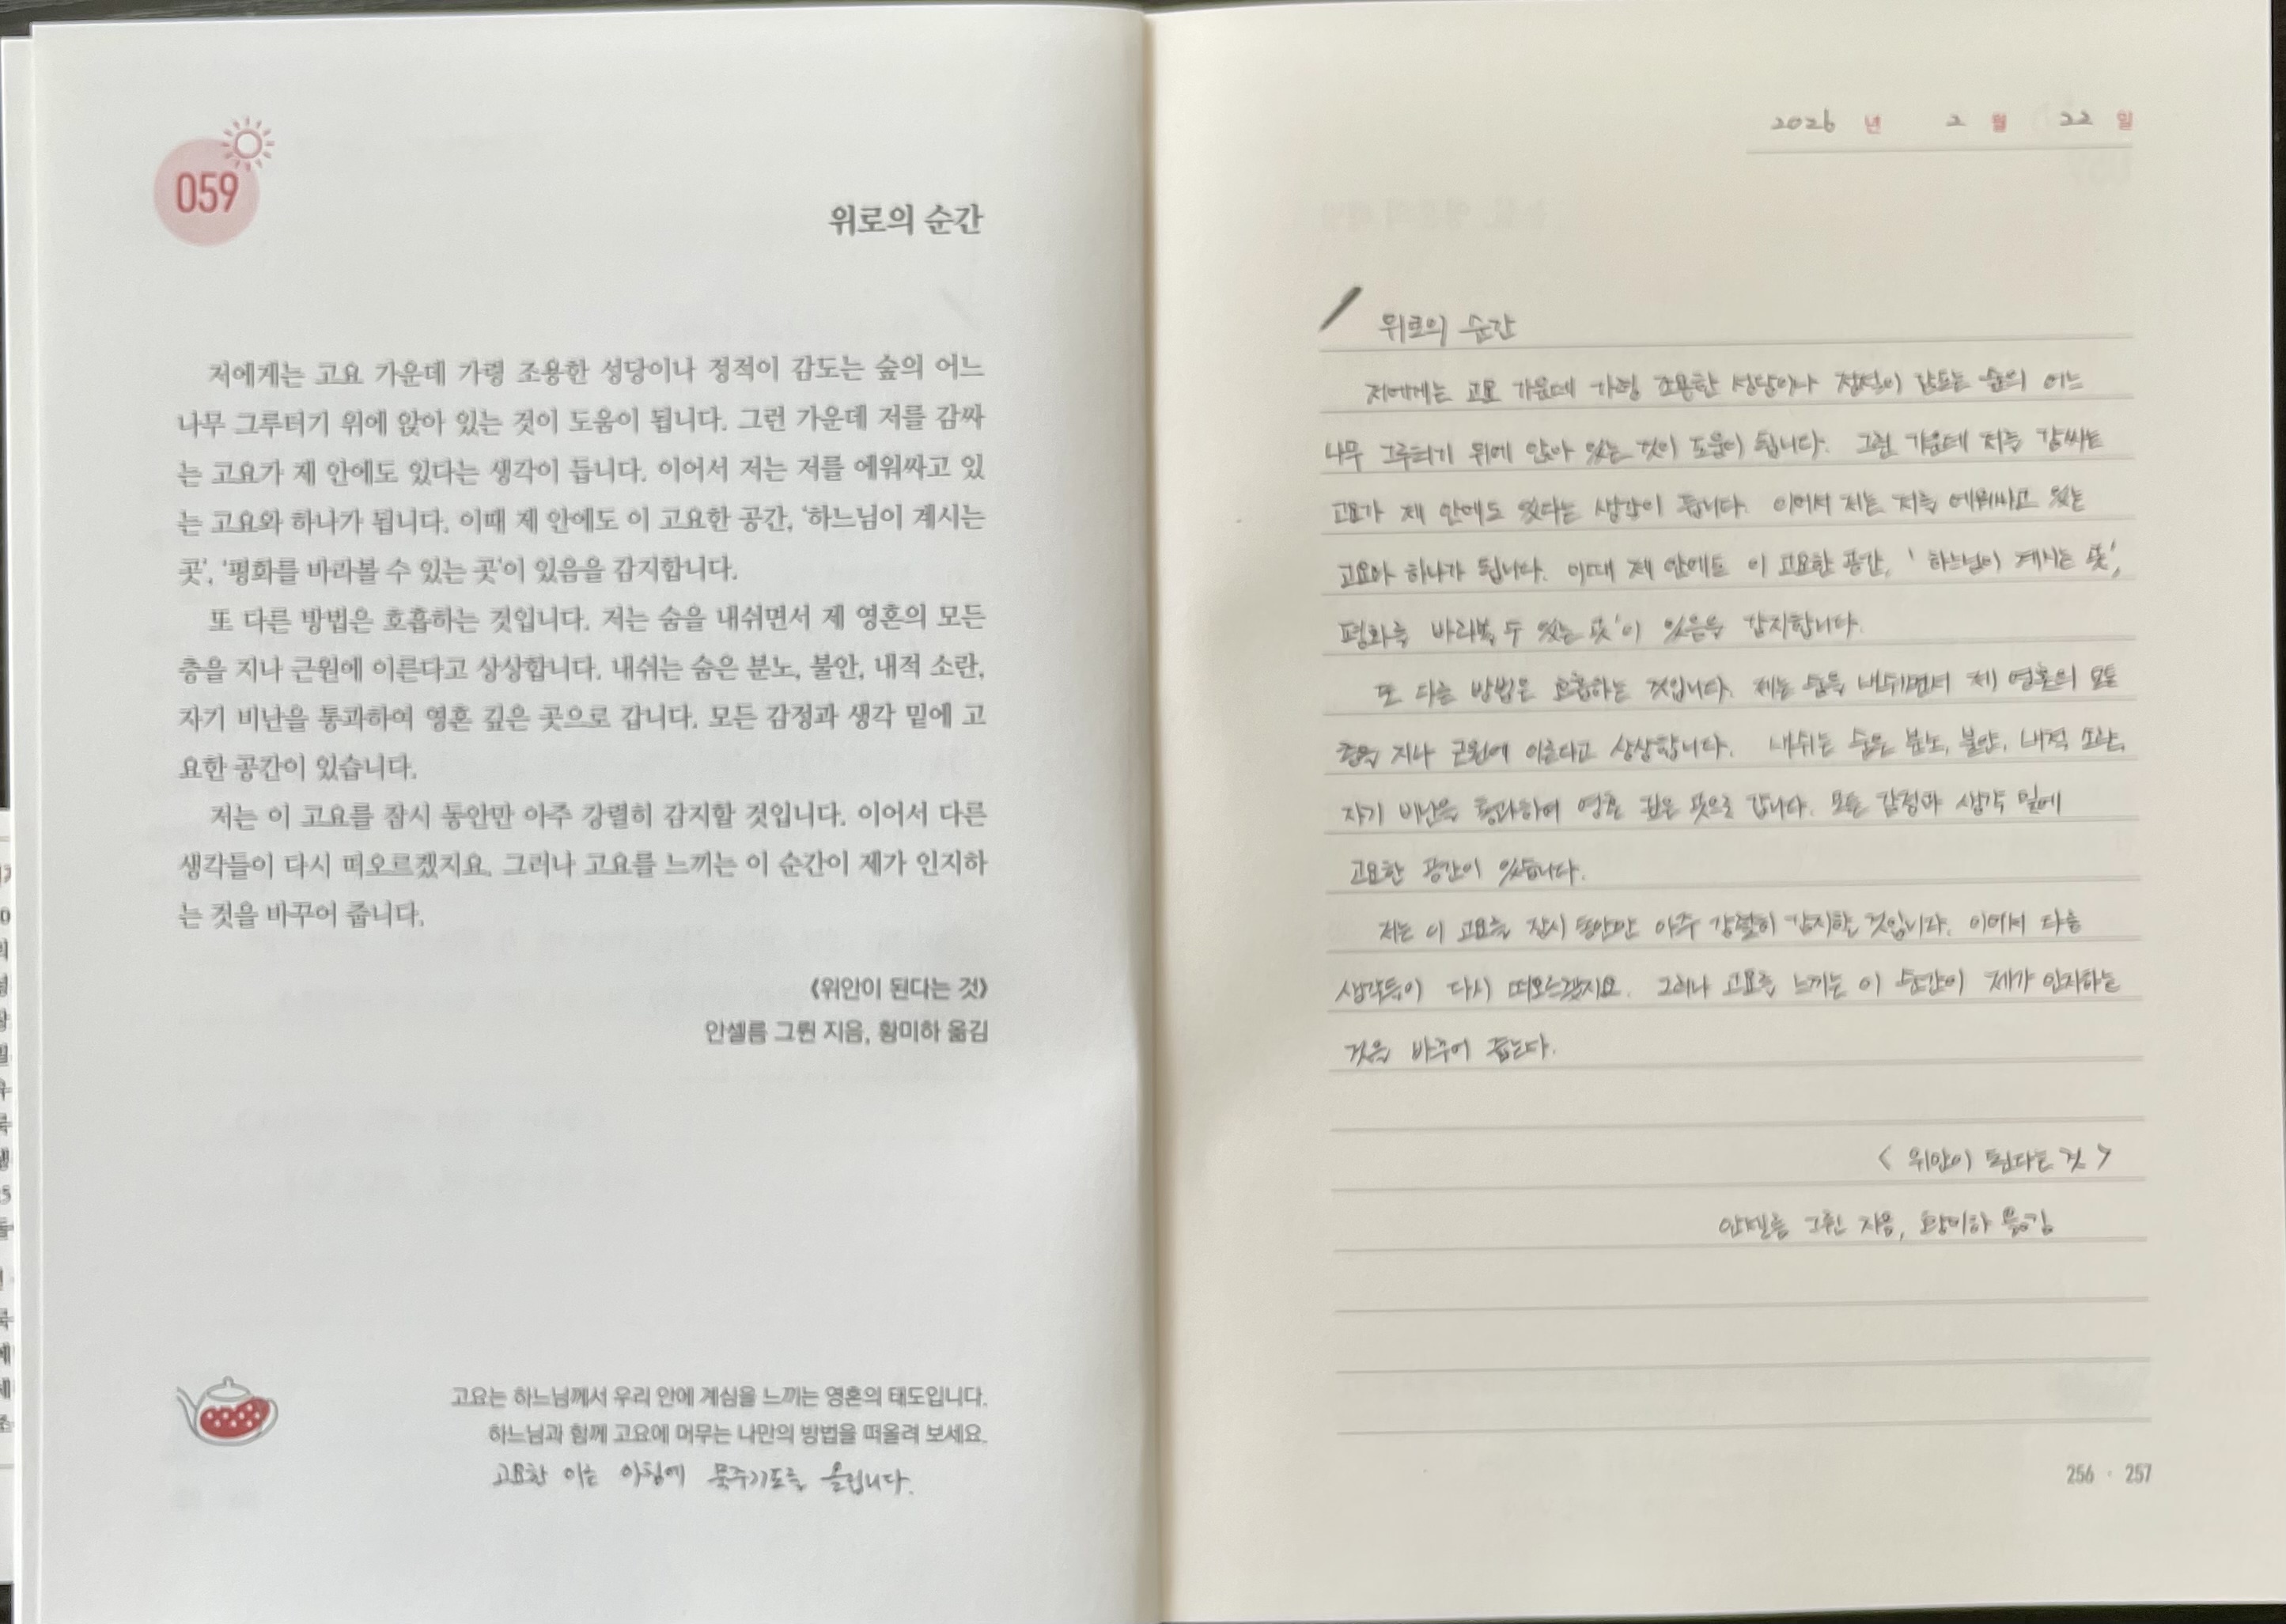 059
위로의 순간
저에게는 고요 가운데 가령 조용한 성당이나 정적이 감도는 숲의 어느
나무 그루터기 위에 앉아 있는 것이 도움이 됩니다. 그런 가운데 저를 감싸
는 고요가 제 안에도 있다는 생각이 듭니다. 이어서 저는 저를 에워싸고 있
는 고요와 하나가 됩니다. 이때 제 안에도 이 고요한 공간, ‘하느님이 계시는
곳’, ‘평화를 바라볼 수 있는 곳’이 있음을 감지합니다.
또 다른 방법은 호흡하는 것입니다. 저는 숨을 내쉬면서 제 영혼의 모든
층을 지나 근원에 이른다고 상상합니다. 내쉬는 숨은 분노, 불안, 내적 소란,
자기 비난을 통과하여 영혼 깊은 곳으로 갑니다. 모든 감정과 생각 밑에 고
요한 공간이 있습니다.
저는 이 고요를 잠시 동안만 아주 강렬히 감지할 것입니다. 이어서 다른
생각들이 다시 떠오르겠지요. 그러나 고요를 느끼는 이 순간이 제가 인지하
는 것을 바꾸어 줍니다.
《위안이 된다는 것》
안셀름 그륀 지음, 황미하 옮김
고요는 하느님께서 우리 안에 계심을 느끼는 영혼의 태도입니다.
하느님과 함께 고요에 머무는 나만의 방법을 떠올려 보세요.
고요한 이른 아침에 묵주기도를 올립니다.
2026 년 2 월 22 일
위로의 순간
저에게는 고요 가운데 가령 조용한 성당이나 정적이 감도는 숲의 어느
나무 그루터기 위에 앉아 있는 것이 도움이 됩니다. 그런 가운데 저를 감싸는
고요가 제 안에도 있다는 생각이 듭니다. 이어서 저는 저를 에워싸고 있는
고요와 하나가 됩니다. 이때 제 안에도 이 고요한 공간, ‘하느님이 계시는 곳’,
평화를 바라볼 수 있는 곳’이 있음을 감지합니다.
또 다른 방법은 호흡하는 것입니다. 제는 숨을 내쉬면서 제 영혼의 모든
층을 지나 근원에 이른다고 상상합니다. 내쉬는 숨은 분노, 불안, 내적 소란,
자기 비난을 통과하여 영혼 깊은 곳으로 갑니다. 모든 감정과 생각 밑에
고요한 공간이 있습니다.
저는 이 고요를 잠시 동안만 아주 강렬히 감지할 것입니다. 이어서 다른
생각들이 다시 떠오르겠지요. 그러나 고요를 느끼는 이 순간이 제가 인지하는
것을 바꾸어 줍니다.
< 위안이 된다는 것 >
안셀름 그륀 지음, 황미하 옮김
256 · 257